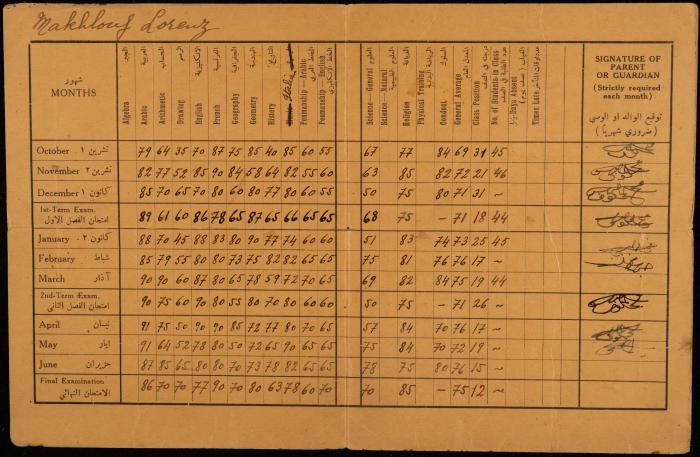 Makhlouf Lorenz
شهور
MONTHS
Algebra الجبر
Arabic العربية
Arithmetic الحساب
Drawing الرسم
English الانكليزية
French الفرنسية
Geography الجغرافية
Geometry الهندسة
History التاريخ
Italic
Penmanship—Arabic الخط العربي
Penmanship—English الخط الانكليزي
Science—General العلوم العمومية
Science—Natural العلوم الطبيعية
Religion الديانة
Physical Training الرياضة البدنية
Conduct السلوك
General Average المعدل العام
Class Position درجته في الصف
No. of Students in Class عدد الطلبة في الصف
Days Absent
Times Late
SIGNATURE OF
PARENT
OR GUARDIAN
(Strictly required
each month)
توقيع الوالد او الوصي
(ضروري شهرياً)
October تشرين ١ 79 64 35 70 87 75 85 40 85 60 55 67 77 84 69 31 45
November تشرين ٢ 82 77 52 85 90 84 58 64 82 55 60 63 85 82 72 21 46
December كانون ١ 85 70 65 70 80 60 80 77 80 60 55 50 75 80 71 31 ~
1st-Term Exam. امتحان الفصل الاول 89 61 60 86 78 65 87 65 66 65 65 68 75 – 71 18 44
January كانون ٢ 88 70 45 88 83 80 90 77 74 60 60 51 83 74 73 25 45
February شباط 85 79 55 80 80 73 75 82 82 65 65 75 81 76 76 17 ~
March آذار 90 90 60 87 80 65 78 59 72 70 65 69 82 84 75 19 44
2nd-Term Exam. امتحان الفصل الثاني 90 75 60 90 80 55 80 70 80 60 60 50 75 – 71 26 ~
April نيسان 91 75 50 90 90 85 72 77 80 70 65 57 84 70 76 17 ~
May ايار 91 64 52 78 80 50 72 65 90 65 65 75 84 70 72 19 ~
June حزيران 87 85 65 80 80 70 73 78 82 65 65 78 75 80 76 15 ~
Final Examination الامتحان النهائي 86 70 70 77 90 70 80 63 78 60 70 70 85 – 75 12 ~